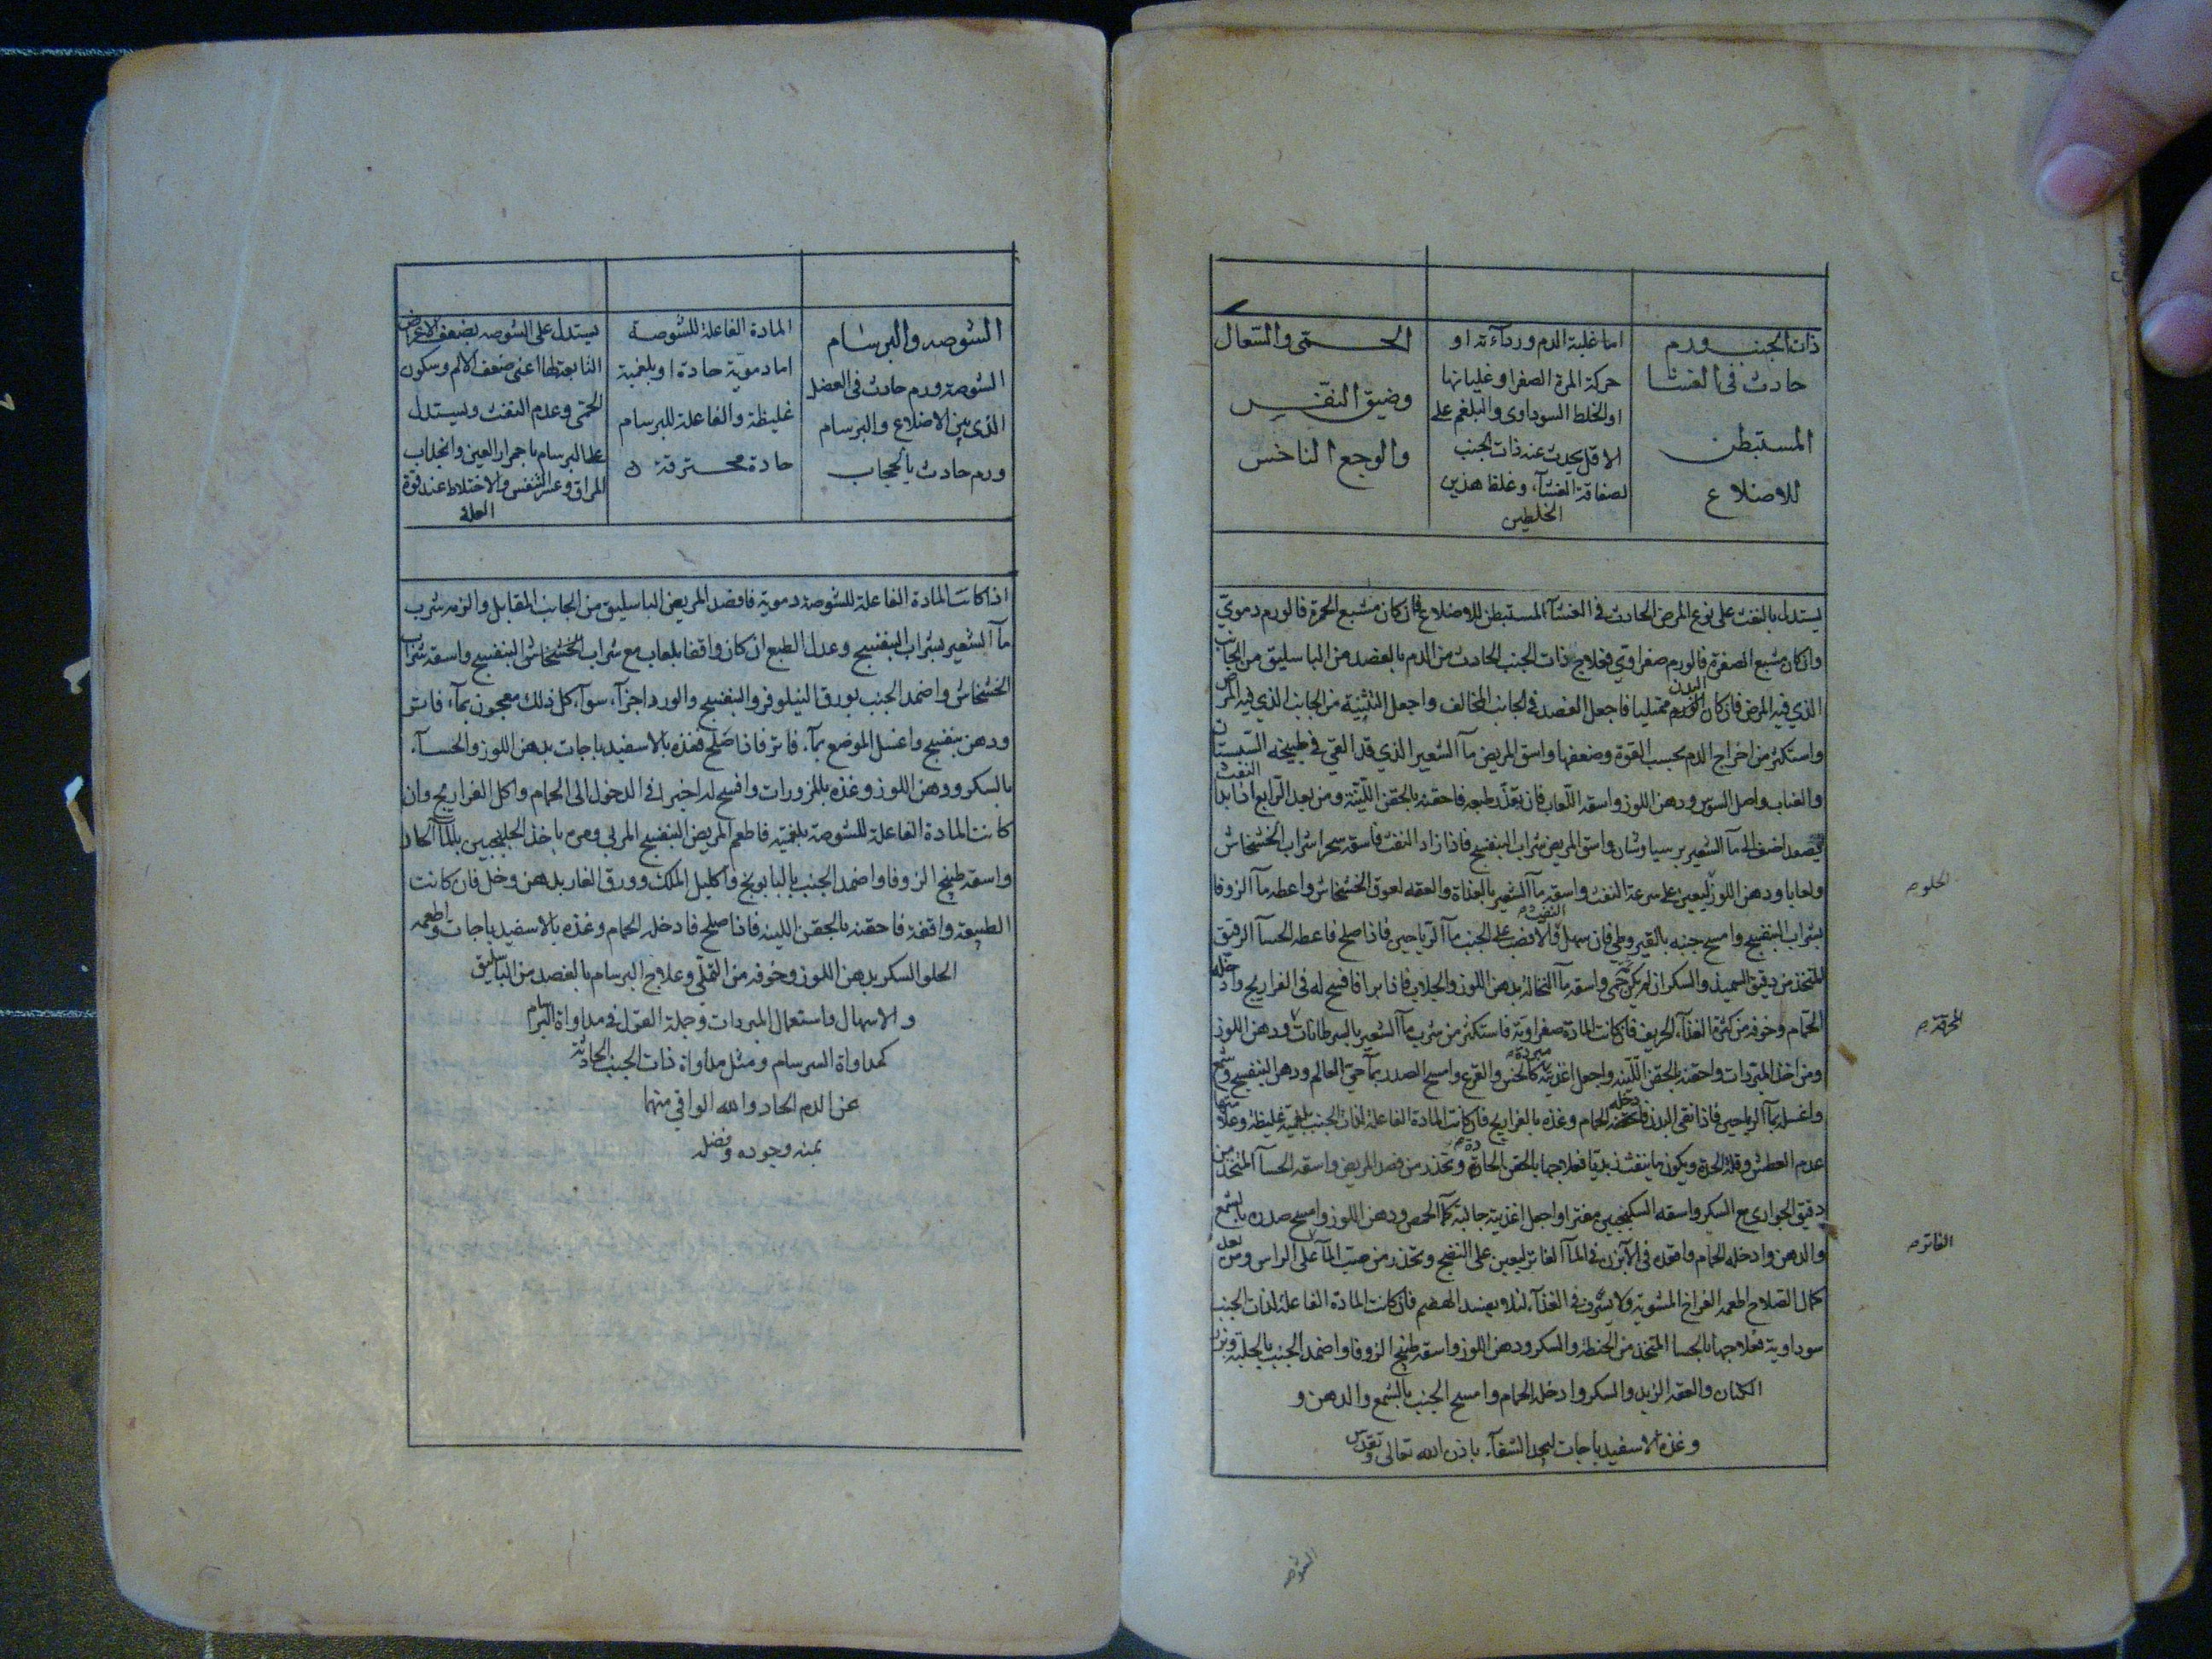 ذات الجنب ورم
حادث في الغشا
المستبطن
للاضلاع
اما غلبة الدم ورداءته او
حركة المرة الصفرا وغليانها
او الخلط السوداوى والبلغم على
الاقل يحدث عنه ذات الجنب
لصفاقة الغشآء وغلظ هذين
الخلطين
الحمى والسعال
وضيق النفس
والوجع الناخس
يستدل بالنفث على نوع المرض الحادث في الغشآ المستبطن للاضلاع فان كان مشبع الحمرة فالورم دموي
وان كان مشبع الصفرة فالورم صفراوي فعلاج ذات الجنب الحادث من الدم بالفصد من الباسليق من الجانب
الذي فيه المرض فان كان البدن ممتليا فاجعل الفصد في الجانب المخالف واجعل التثنية من الجانب الذي فيه المرض
واستكثر من اخراج الدم بحسب القوة وضعفها واسق المريض مآ الشعير الذي قد القي في طبيخه السبستان
والعناب واصل السوس ودهن اللوز واسقه اللعاب فان تعذر طبعه فاحقنه بالحقن اللينة ومن بعد الرابع اذا بدا النفث
يصعد اضف الى مآ الشعير برسياوشان واسق المريض شراب البنفسج فاذا زاد النفث فاسقه سحرا شراب الخشخاش
ولعابا ودهن اللوز ليعين على سرعة النفث واسقه مآ الشعير بالغداة والعقه لعوق الخشخاش واعطه مآ الزوفا
بشراب البنفسج وامسح جنبه بالقيروطي فان سهل النفث والا فصب على الجنب مآ الرياحين فاذا صلح فاعطه الحسآ الرقيق
المتخذ من دقيق السميذ والسكر ان لم يكن حمى واسقه مآ النخالة بدهن اللوز والجلاب فاذا برا فافسح له في الفراريج وادخله
الحمام وخوفه من كثرة الغذآء الحريف فان كانت المادة صفراوية فاستكثر من شرب مآ الشعير بالسرطانات ودهن اللوز
ومن اخذ المبردات واحقنه بالحقن اللينه واجعل اغذيته مبردة كالخس والقرع وامسح الصدر بمآ حي العالم ودهن البنفسج وشمع
واغسله بمآ الرياحين فاذا نقي البدن فادخله الحمام وغذه بالفراريج فان كانت المادة الفاعلة لذات الجنب بلغمية غليظة وعلامتها
عدم العطش وقلة الحرة ويكون ما ينفث زبديا فعلاجها بالحقن الحادة وتحذر من فصد المريض واسقه الحسآ المتخذ من
دقيق الحواري مع السكر واسقه السكنجبين مفترا واجعل اغذيته جالية كمآ الحمص ودهن اللوز وامسح صدره بالشمع
والدهن وادخله الحمام واقعده في الآبزن في المآ الفاتر ليعين على النضج وتحذر من صب المآ على الراس ومن بعد
كمال الصلاح اطعمه الفراخ المشوية ولا يسرف في الغذآء لئلا يفسد الهضم فان كانت المادة الفاعلة لذات الجنب
سوداوية فعلاجها بالحسا المتخذ من الحنطة والسكر ودهن اللوز واسقه طبيخ الزوفا واضمد الجنب بالحلبة وبزر
الكتان والعقه الزبد والسكر وادخله الحمام وامسح الجنب بالشمع والدهن و
وغذه بالاسفيدباجات ليجد الشفآء باذن الله تعالى وتقدس
الحلو صح
المحرقة صح
الفاتر صح
الشوصه
الشوصه والبرسام
الشوصة ورم حادث في العضل
الذى بين الاضلاع والبرسام
ورم حادث بالحجاب
المادة الفاعلة للشوصة
اما دموية حادة او بلغمية
غليظة والفاعلة للبرسام
حادة محترقة
يستدل على الشوصه بضعف الاعراض
التابعة لها اعنى ضعف الالم وسكون
الحمى وعدم النفث ويستدل
على البرسام باحمرار العين وانجذاب
المراق وعسر التنفس والاختلاط عند قوة
العلة
اذا كانت المادة الفاعلة للشوصة دموية فافصد المريض الباسليق من الجانب المقابل والزمه شرب
مآ الشعير بشراب البنفسج وعدل الطبع ان كان واقفا بلعاب مع شراب الخشخاش البنفسج واسقه شراب
الخشخاش واضمد الجنب بورق النيلوفر والبنفسج والورد اجزآء سوآء كل ذلك معجون بمآء فاتر
ودهن بنفسج واغسل الموضع بمآء فاتر فاذا صلح فغذه بالاسفيدباجات بدهن اللوز والحسآء
بالسكر ودهن اللوز وغذه بالمزورات وافسح له اخيرا في الدخول الى الحمام واكل الفراريج وان
كانت المادة الفاعلة للشوصة بلغمية فاطعم المريض البنفسج المربي ومره باخذ الجلنجبين بالمآ الحار
واسقه طبيخ الزوفا واضمد الجنب بالبابونج واكليل الملك وورق الغار بدهن وخل فان كانت
الطبيعة واقفة فاحقنه بالحقن اللينه فاذا صلح فادخله الحمام وغذه بالاسفيدباجات واطعمه
الحلو السكر بدهن اللوز وخوفه من التملي وعلاج البرسام بالفصد من الباسليق
والاسهال واستعمال المبردات وجملة القول في مداواة البرسام
كمداواة السرسام ومثل مداواة ذات الجنب الحادثة
عن الدم الحاد والله الواقي منهما
بمنه وجوده وفضله